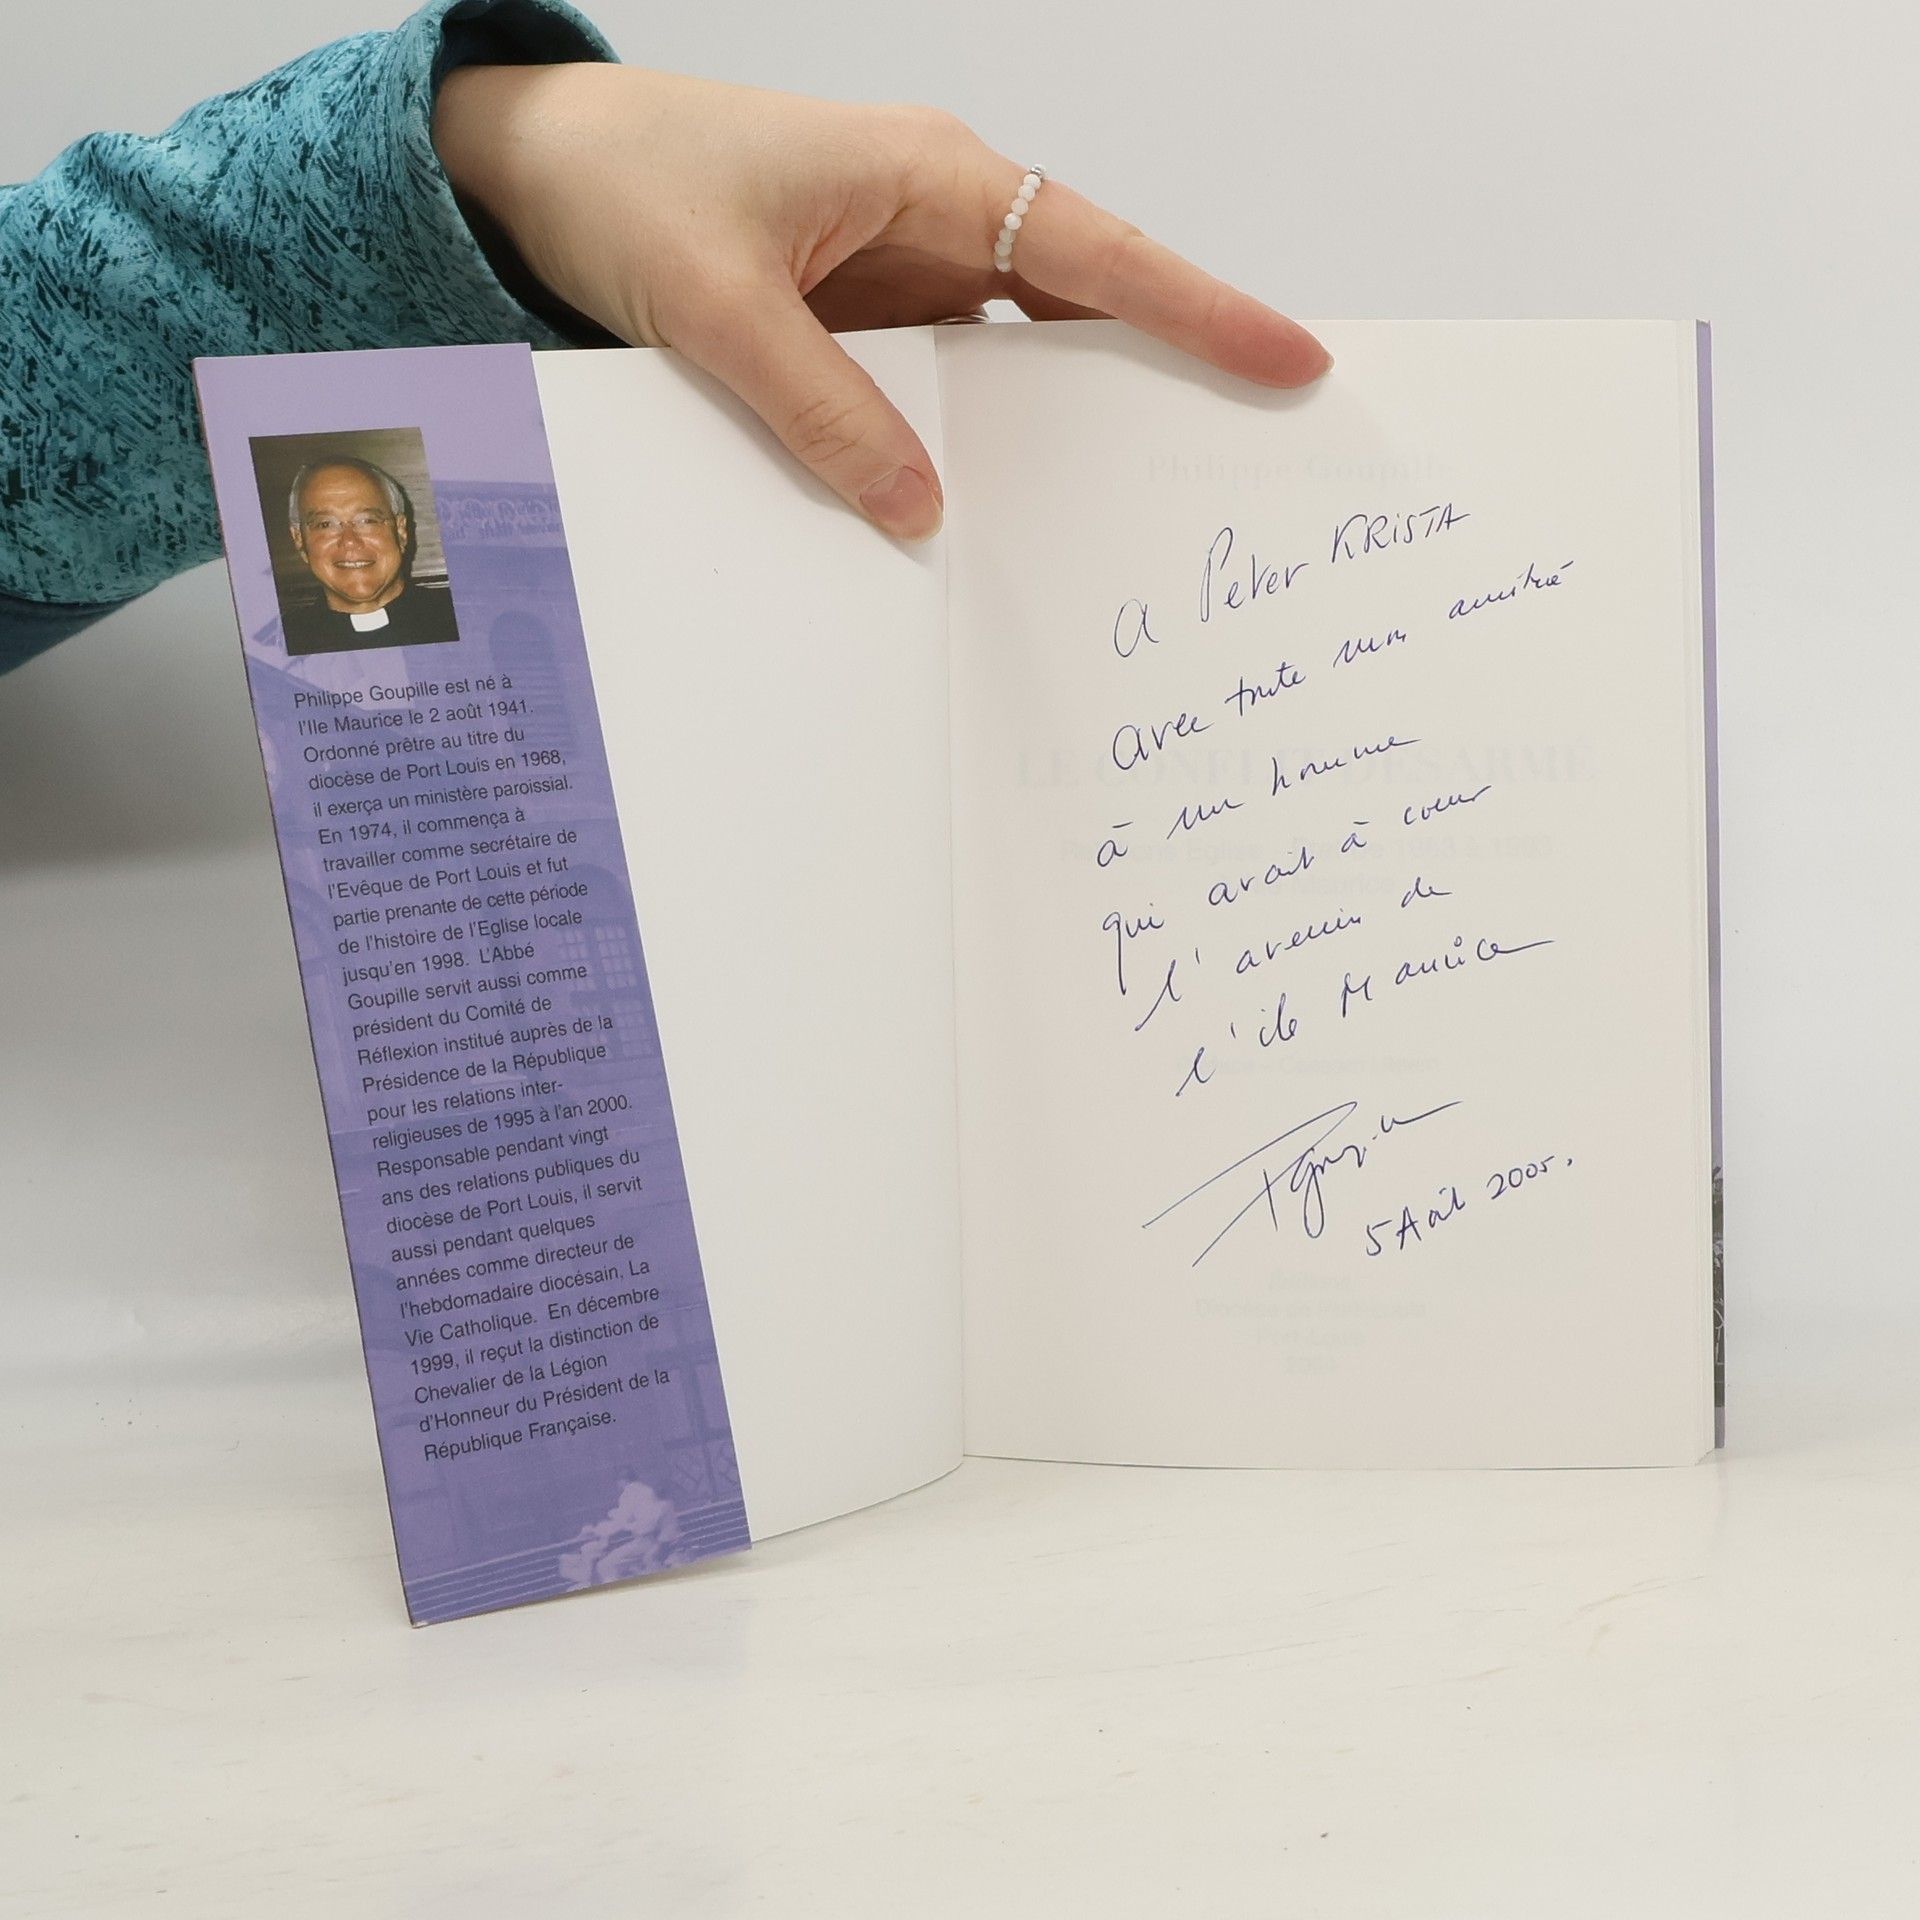 Philippe Goupille est né à
l'Ile Maurice le 2 août 1941.
Ordonné prêtre au titre du
diocèse de Port Louis en 1968,
il exerça un ministère paroissial.
En 1974, il commença à
travailler comme secrétaire de
l'Evêque de Port Louis et fut
partie prenante de cette période
de l'histoire de l'Eglise locale
jusqu'en 1998. L'Abbé
Goupille servit aussi comme
président du Comité de
Réflexion institué auprès de la
Présidence de la République
pour les relations inter-
religieuses de 1995 à l'an 2000.
Responsable pendant vingt
ans des relations publiques du
diocèse de Port Louis, il servit
aussi pendant quelques
années comme directeur de
l'hebdomadaire diocésain, La
Vie Catholique. En décembre
1999, il reçut la distinction de
Chevalier de la Légion
d'Honneur du Président de la
République Française.
Philippe Goupille
A Peter KRISTA
avec toute mon amitié
LE CONFLIT DESARME
à un homme
qui avait à coeur
l'avenir de
l'ile Maurice
5 Août 2005.